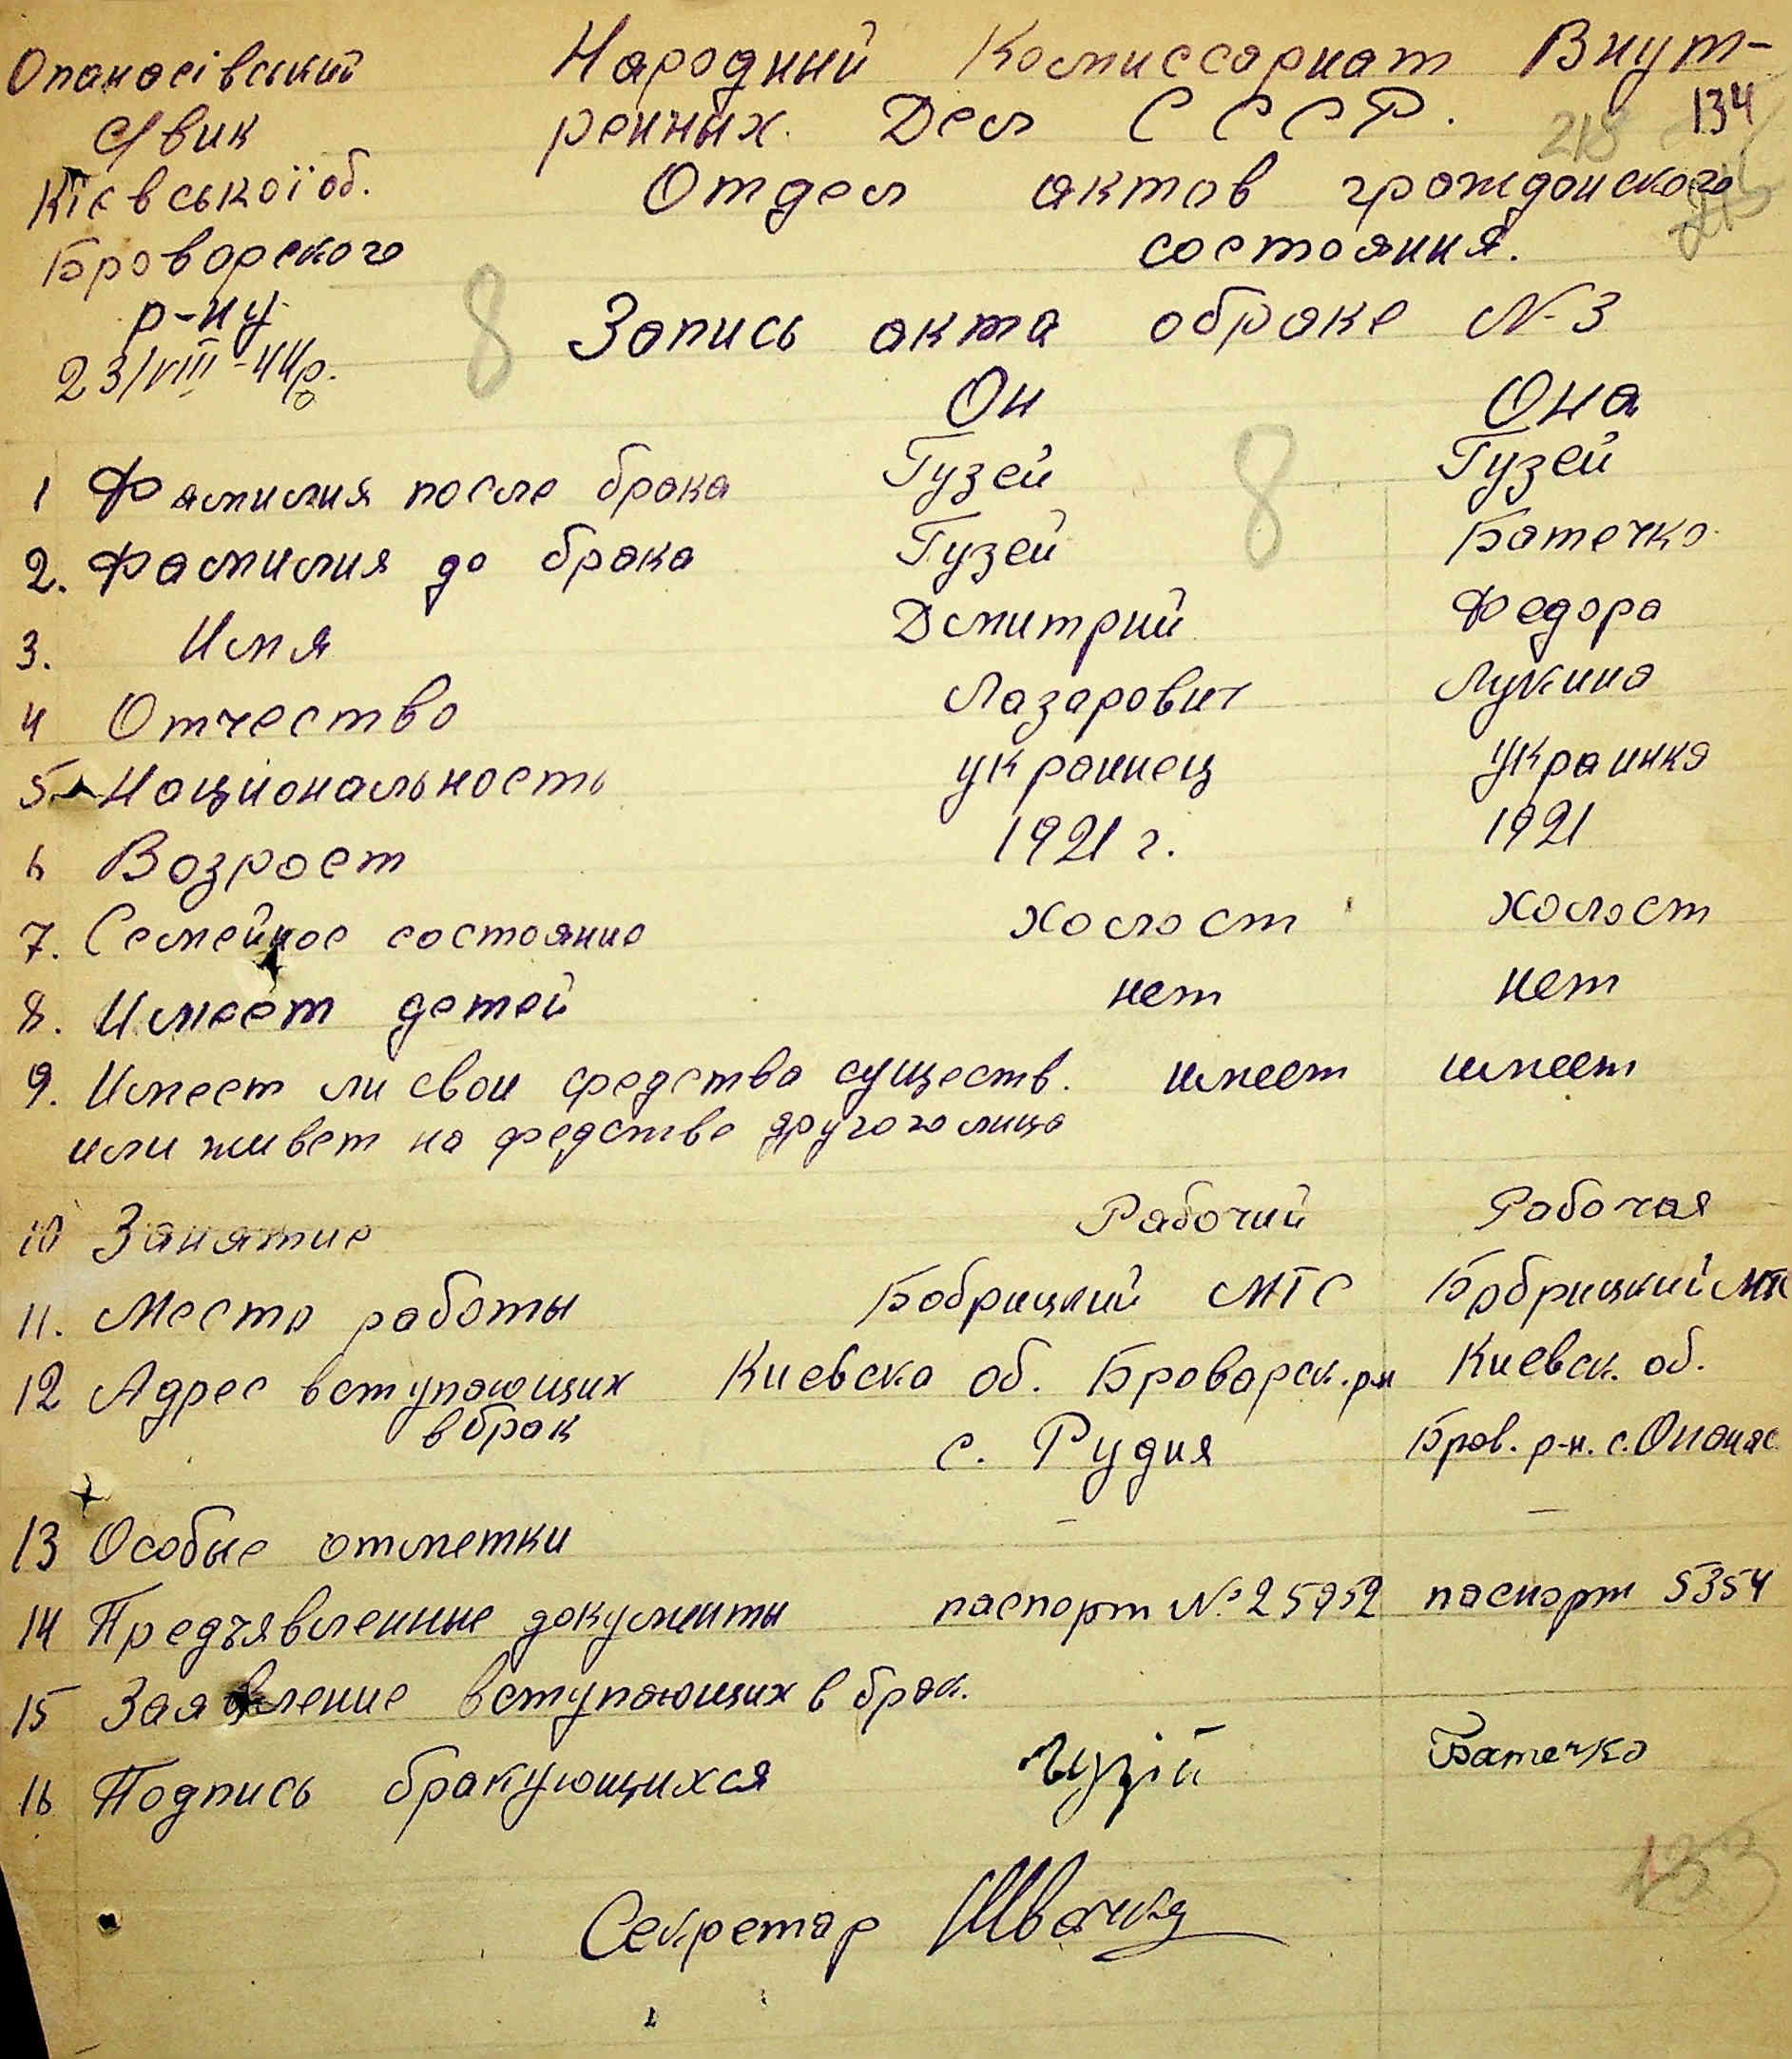 Опанасівський
с/вик
Кіевської об.
Броворского
р-ну
23/VIII-44р.
Народний Комиссариат Внут-
ренных Дел СССР.
134
218
Отдел актов гражданского
состояния.
8
Запись акта о браке N-3
Он Она
1 Фамилия после брака Гузей Гузей
8
2. Фамилия до брака Гузей Батечко
3. Имя Дмитрий Федора
4 Отчество Лазарович Лукина
5. Національность украинец украинка
6 Возраст 1921 г. 1921
7. Семейное состояние холост холост
8. Имеет детей нет нет
9. Имеет ли свои средства существ. имеет имеет
или живет на средстве другого лица
10 Занятие Рабочий Рабочая
11. Место работы Бобрицкий МТС Бобрицкий МТС
12 Адрес вступающих Киевска об. Броварск. р-н Киевск. об.
в брак с. Рудня Бров. р-н. с. Опанас
13 Особые отметки – –
14 Предъявленные документы паспорт №25952 паспорт 5354
15 Заявление вступающих в брак.
16 Подпись бракующихся Гузій Батечко
133
Секретар Швачка